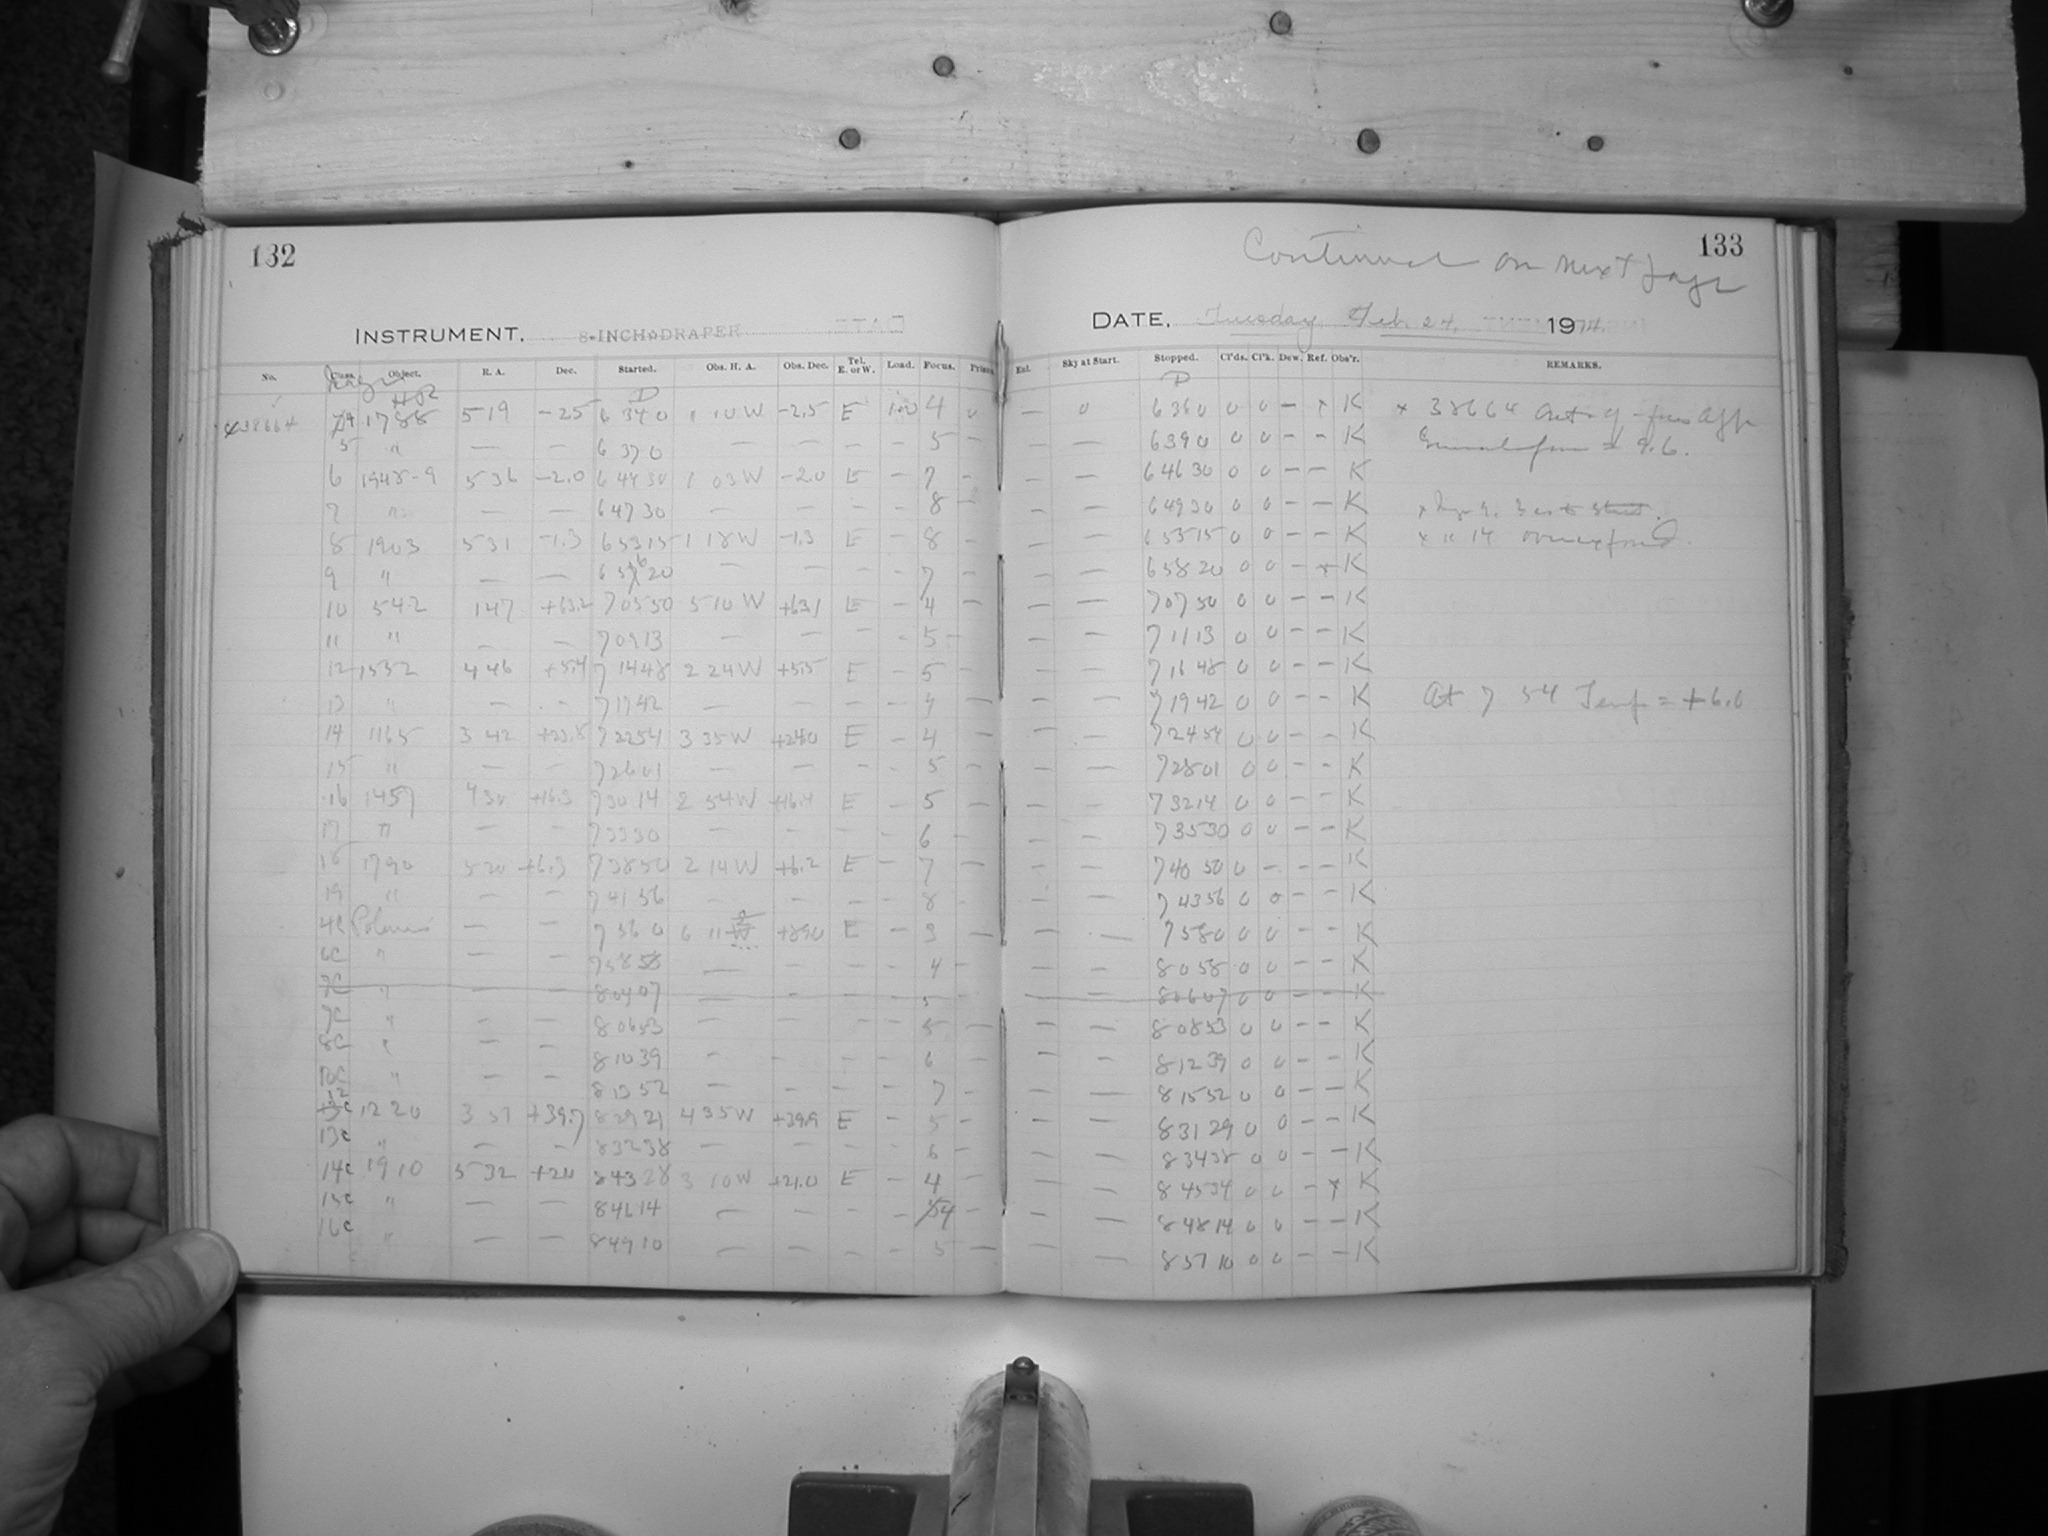 132
133
Continued on next page
INSTRUMENT. 8-INCH DRAPER
DATE, Tuesday Feb. 24. 1914.
No. Class. Object. R. A. Dec. Started. Obs. H. A. Obs. Dec. Tel. E. or W. Load. Focus. Prism. Exl. Sky at Start. Stopped. Cl'ds. Cl'k. Dew. Ref. Obs'r. REMARKS.
HR
x38664 4 1788 5 19 -2.5 6 34 0 1 10 W -2.5 E 100 4 0 — 0 6 36 0 0 0 - x K x 38664
5 " — — 6 37 0 — — - - 5 - — — 6 39 0 0 0 - - K = 9.6.
6 1948-9 5 36 -2.0 6 44 30 1 03 W -2.0 E - 7 - — — 6 46 30 0 0 - - K
7 " — — 6 47 30 — — - - 8 - — — 6 49 30 0 0 - - K
8 1903 5 31 -1.3 6 53 15 1 18 W -1.3 E - 8 - — — 6 55 15 0 0 - - K x " 14 overexposed.
9 " — — 6 56 20 — — - - 7 - — — 6 58 20 0 0 - x K
10 542 1 47 +63.2 7 05 50 5 10 W +63.1 E - 4 - — — 7 07 50 0 0 - - K
11 " — — 7 09 13 — — - - 5 - — — 7 11 13 0 0 - - K
12 1552 4 46 +5.4 7 14 48 2 24 W +5.5 E - 5 - — — 7 16 48 0 0 - - K
13 " — — 7 17 42 — — - - 4 - — — 7 19 42 0 0 - - K At 7 54 Temp = +6.0
14 1165 3 42 +23.8 7 22 54 3 35 W +24.0 E - 4 - — — 7 24 54 0 0 - - K
15 " — — 7 26 01 — — - - 5 - — — 7 28 01 0 0 - - K
16 1457 4 30 +16.3 7 30 14 2 54 W +16.4 E - 5 - — — 7 32 14 0 0 - - K
17 " — — 7 33 30 — — - - 6 - — — 7 35 30 0 0 - - K
18 1790 5 20 +6.3 7 38 50 2 14 W +6.2 E - 7 - — — 7 40 50 0 - - - K
19 " — — 7 41 56 — — - - 8 - — — 7 43 56 0 0 - - K
4C Polaris — — 7 56 0 6 11 +89.0 E - 3 - — — 7 58 0 0 0 - - K
6C " — — 7 58 58 — — - - 4 - — — 8 0 58 0 0 - - K
7C " — — 8 04 07 — — - - 5 - — — 8 06 07 0 0 - - K
7C " — — 8 06 53 — — - - 5 - — — 8 08 53 0 0 - - K
8C " — — 8 10 39 — — - - 6 - — — 8 12 39 0 0 - - K
10C " — — 8 13 52 — — - - 7 - — — 8 15 52 0 0 - - K
12C 1220 3 51 +39.7 8 29 29 4 35 W +39.9 E - 5 - — — 8 31 29 0 0 - - K
13C " — — 8 32 38 — — - - 6 - — — 8 34 38 0 0 - - K
14C 1910 5 32 +21.1 8 43 28 3 10 W +21.0 E - 4 - — — 8 45 34 0 0 - x K
15C " — — 8 46 14 — — - - 4 - — — 8 48 14 0 0 - - K
16C " — — 8 49 10 — — - - 5 - — — 8 57 10 0 0 - - K